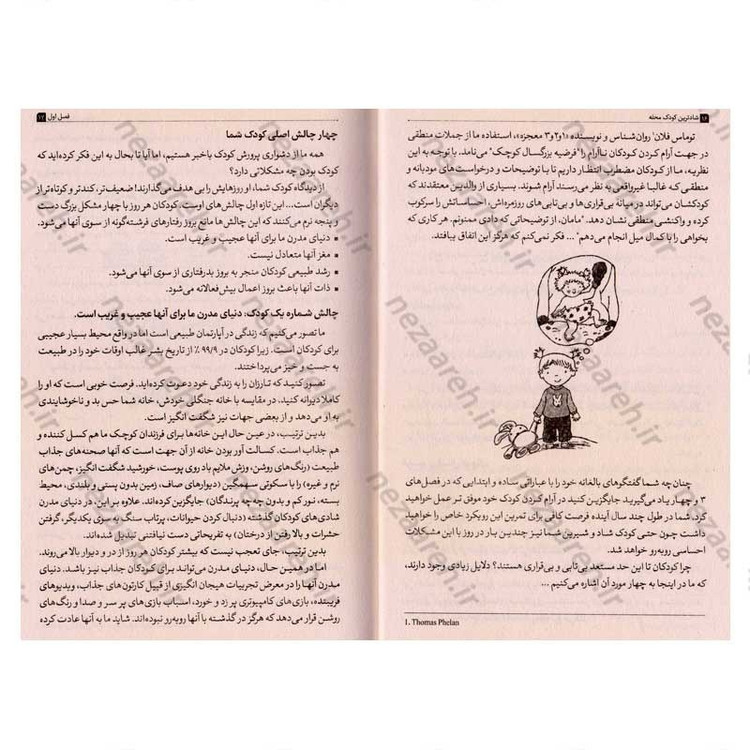 ۱۶ شادترین کودک محله
توماس فلان¹ روان‌شناس و نویسنده «۱و۲و۳ معجزه»، استفاده ما از جملات منطقی
در جهت آرام کردن کودکان ناآرام را "فرضیه بزرگسال کوچک" می‌نامد. با توجه به این
نظریه، ما از کودکان مضطرب انتظار داریم تا با توضیحات و درخواست‌های مودبانه و
منطقی که غالبا غیرواقعی به نظر می‌رسند آرام شوند. بسیاری از والدین معتقدند که
کودکشان می‌تواند در میانه بی‌قراری‌ها و بی‌تابی‌های روزمره‌اش، احساساتش را سرکوب
کرده و واکنشی منطقی نشان دهد. "مامان، از توضیحاتی که دادی ممنونم. هر کاری که
بخواهی را با کمال میل انجام می‌دهم" ... فکر نمی‌کنم که هرگز این اتفاق بیافتد.
چنان چه شما گفتگوهای بالغانه خود را با عباراتی ساده و ابتدایی که در فصل‌های
۳ و چهار یاد می‌گیرید جایگزین کنید در آرام کردن کودک خود موفق تر عمل خواهید
کرد. شما در طول چند سال آینده فرصت کافی برای تمرین این رویکرد خاص را خواهید
داشت چون حتی کودک شاد و شیرین شما نیز چندین بار در روز با این مشکلات
احساسی روبه‌رو خواهد شد.
چرا کودکان تا این حد مستعد بی‌تابی و بی‌قراری هستند؟ دلایل زیادی وجود دارند،
که ما در اینجا به چهار مورد آن اشاره می‌کنیم ...
1. Thomas Phelan
فصل اول ۱۷
چهار چالش اصلی کودک شما
همه ما از دشواری پرورش کودک باخبر هستیم، اما آیا تا بحال به این فکر کرده‌اید که
کودک بودن چه مشکلاتی دارد؟
از دیدگاه کودک شما، او روزهایش را بی هدف می‌گذارند! ضعیف‌تر، کندتر و کوتاه‌تر از
دیگران است... این تازه اول چالش‌های اوست. کودکان هر روز با چهار مشکل بزرگ دست
و پنجه نرم می‌کنند که این چالش‌ها مانع بروز رفتارهای فرشته‌گونه از سوی آنها می‌شود.
▪ دنیای مدرن ما برای آنها عجیب و غریب است.
▪ مغز آنها متعادل نیست.
▪ رشد طبیعی کودکان منجر به بروز بدرفتاری از سوی آنها می‌شود.
▪ ذات آنها باعث بروز اعمال بیش‌فعالانه می‌شود.
چالش شماره یک کودک: دنیای مدرن ما برای آنها عجیب و غریب است.
ما تصور می‌کنیم که زندگی در آپارتمان طبیعی است اما در واقع محیط بسیار عجیبی
برای کودکان است. زیرا کودکان در ۹۹/۹ ٪ از تاریخ بشر غالب اوقات خود را در طبیعت
به جست و خیز می‌پرداختند.
تصور کنید که تارزان را به زندگی خود دعوت کرده‌اید. فرصت خوبی است که او را
کاملا دیوانه کنید. در مقایسه با خانه جنگلی خودش، خانه شما حس بد و ناخوشایندی
به او می‌دهد و از بعضی جهات نیز شگفت انگیز است.
بدین ترتیب، در عین حال این خانه‌ها برای فرزندان کوچک ما هم کسل کننده و
هم جذاب است. کسالت آور بودن خانه از آن جهت است که آنها صحنه‌های جذاب
طبیعت (رنگ‌های روشن، وزش ملایم باد روی پوست، خورشید شگفت انگیز، چمن‌های
نرم و غیره) را با سکوتی سهمگین (دیوارهای صاف، زمین بدون پستی و بلندی، محیط
بسته، نور کم و بدون چه چه پرندگان) جایگزین کرده‌اند. علاوه بر این، در دنیای مدرن
شادی‌های کودکان گذشته (دنبال کردن حیوانات، پرتاب سنگ به سوی یکدیگر، گرفتن
حشرات و بالا رفتن از درختان) به تفریحاتی دست نیافتنی تبدیل شده‌اند.
بدین ترتیب، جای تعجب نیست که بیشتر کودکان هر روز از در و دیوار بالا می‌روند.
اما در همین حال، دنیای مدرن می‌تواند برای کودکان جذاب نیز باشد. دنیای
مدرن آنها را در معرض تجربیات هیجان انگیزی از قبیل کارتون‌های جذاب، ویدیوهای
فریبنده، بازی‌های کامپیوتری پر زد و خورد، اسباب بازی‌های پر سر و صدا و رنگ‌های
روشن قرار می‌دهد که هرگز در گذشته با آنها روبه‌رو نبوده‌اند. شاید ما به آنها عادت کرده
nezaareh.ir